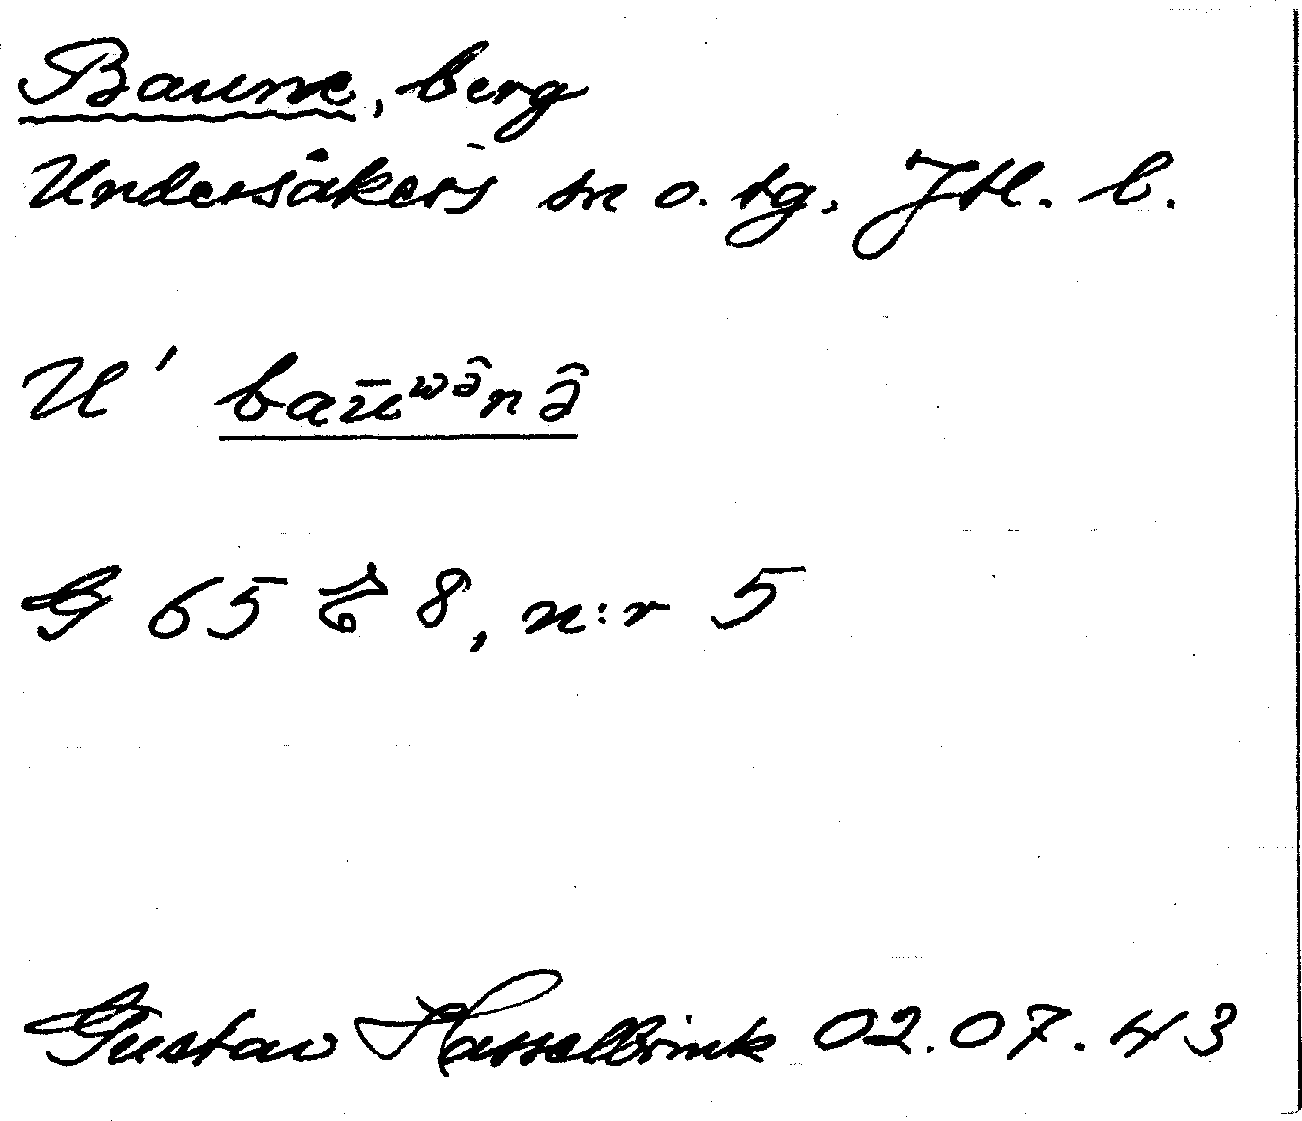 Baune, berg
Undersåkers sn o. tg. Jtl. l.
U' baūʷᵊ̂nə̂
G 65 8, n:r 5
Gustav Hasselbrink 02.07.43